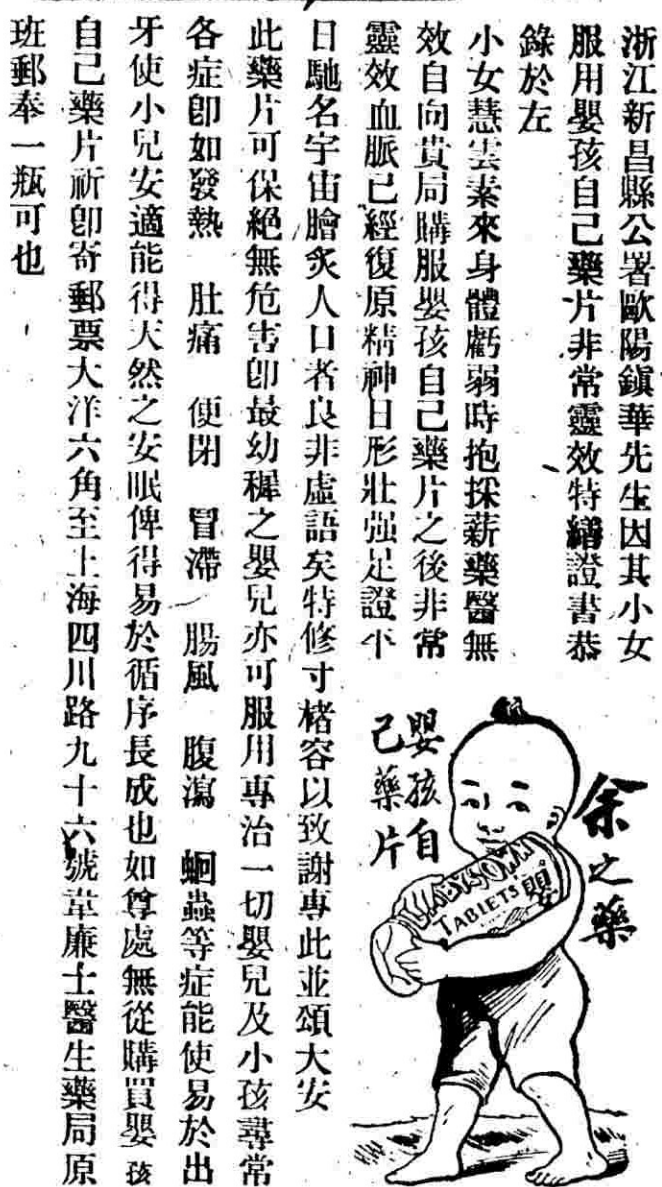 浙江新昌縣公署歐陽鎭華先生因其小女
服用嬰孩自己藥片非常靈效特繕證書恭
錄於左
小女慧雲素來身體虧弱時抱採薪藥醫無
效自向貴局購服嬰孩自己藥片之後非常
靈效血脈已經復原精神日形壯强足證平
日馳名宇宙膾炙人口者良非虛語矣特修寸楮容以致謝專此並頌大安
此藥片可保絕無危害卽最幼穉之嬰兒亦可服用專治一切嬰兒及小孩尋常
各症卽如發熱 肚痛 便閉 冒滯 腸風 腹瀉 蛔蟲等症能使易於出
牙使小兒安適能得天然之安眠俾得易於循序長成也如尊處無從購買嬰孩
自己藥片祈卽寄郵票大洋六角至上海四川路九十六號韋廉士醫生藥局原
班郵奉一瓶可也
余之藥
嬰孩自
己藥片
BABY'S OWN
TABLETS